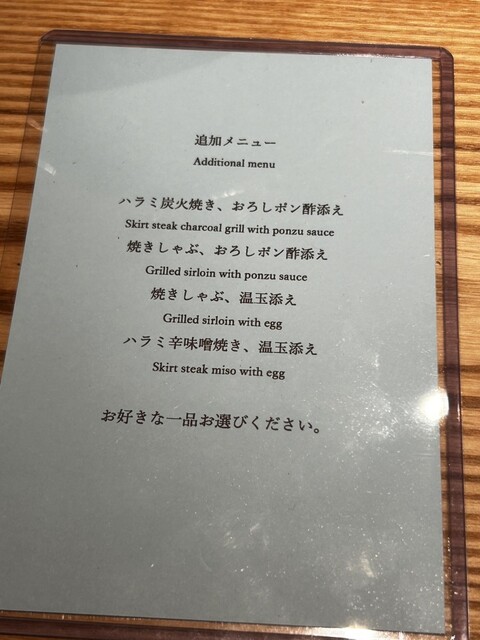 追加メニュー
Additional menu
ハラミ炭火焼き、おろしポン酢添え
Skirt steak charcoal grill with ponzu sauce
焼きしゃぶ、おろしポン酢添え
Grilled sirloin with ponzu sauce
焼きしゃぶ、温玉添え
Grilled sirloin with egg
ハラミ辛味噌焼き、温玉添え
Skirt steak miso with egg
お好きな一品お選びください。